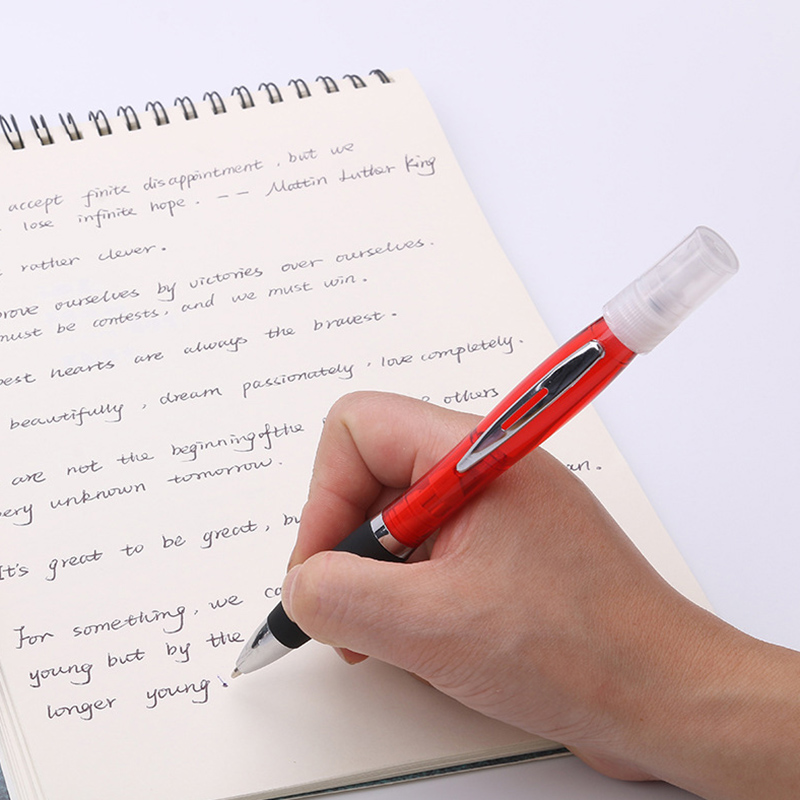 accept finite disappointment , but we
lose infinite hope . -- Mattin Luther King
rather clever .
prove ourselves by victories over ourselves .
must be contests, and we must win .
best hearts are always the bravest .
beautifully , dream passionately , love completely .
are not the beginning of the others
very unknown tomorrow . an .
It's great to be great, bu
For something, we co
young but by the
longer young